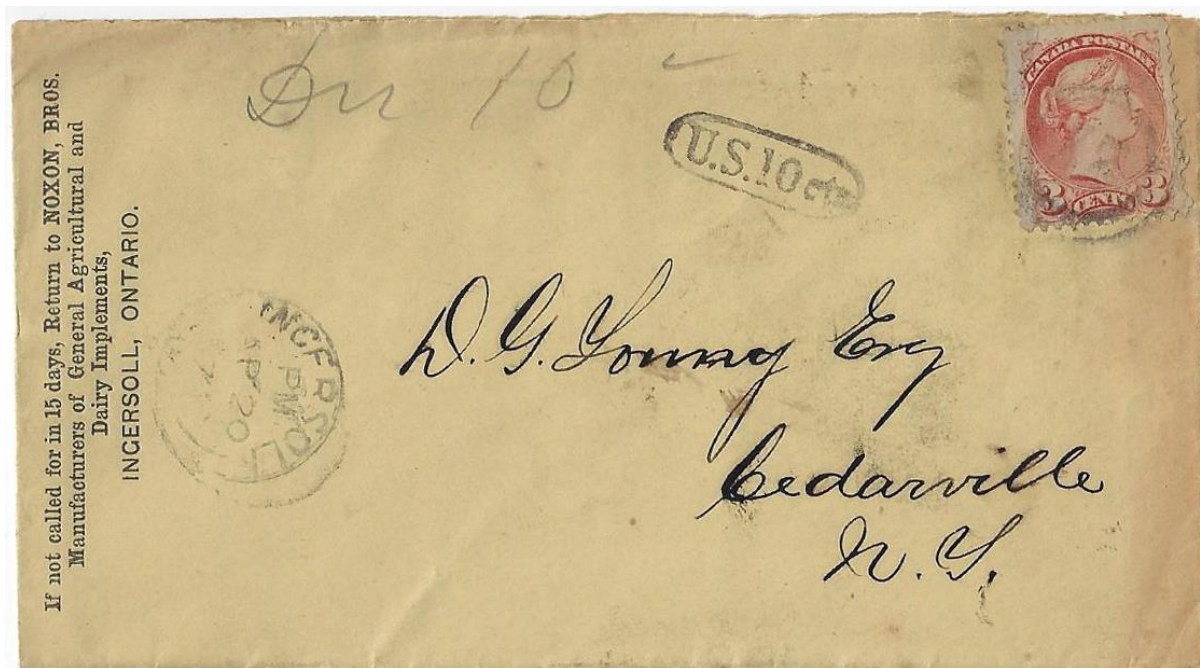 If not called for in 15 days, Return to NOXON, BROS.
Manufacturers of General Agricultural and
Dairy Implements,
INGERSOLL, ONTARIO.
Due 10
U.S. 10 cts
CANADA POSTAGE
3 CENTS 3
INGERSOLL
PM
AP 20
D. G. Young Esq
Cedarville
N. Y.